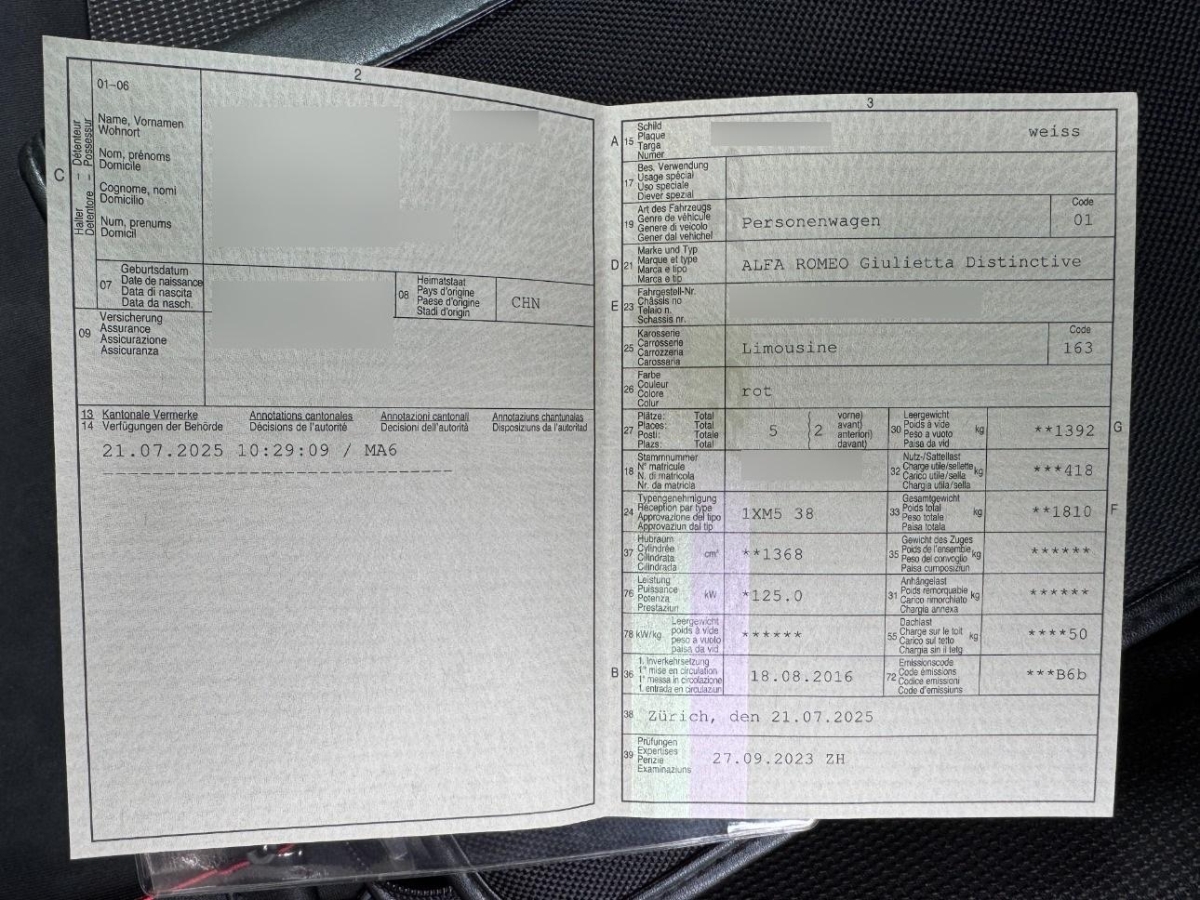 2
01–06
C
Halter – Détenteur
Detentore – Possessur
Name, Vornamen
Wohnort
Nom, prénoms
Domicile
Cognome, nomi
Domicilio
Num, prenums
Domicil
07
Geburtsdatum
Date de naissance
Data di nascita
Data da nasch.
08
Heimatstaat
Pays d'origine
Paese d'origine
Stadi d'origin
CHN
09
Versicherung
Assurance
Assicurazione
Assicuranza
13
14
Kantonale Vermerke
Verfügungen der Behörde
Annotations cantonales
Décisions de l'autorité
Annotazioni cantonali
Decisioni dell'autorità
Annotaziuns chantunalas
Disposiziuns da l'autoritad
21.07.2025 10:29:09 / MA6
3
A 15
Schild
Plaque
Targa
Numer
weiss
17
Bes. Verwendung
Usage spécial
Uso speciale
Diever spezial
19
Art des Fahrzeugs
Genre de véhicule
Genere di veicolo
Gener dal vehichel
Personenwagen
Code
01
D 21
Marke und Typ
Marque et type
Marca e tipo
Marca e tip
ALFA ROMEO Giulietta Distinctive
E 23
Fahrgestell-Nr.
Châssis no
Telaio n.
Schassis nr.
25
Karosserie
Carrosserie
Carrozzeria
Carossaria
Limousine
Code
163
26
Farbe
Couleur
Colore
Colur
rot
27
Plätze: Total
Places: Total
Posti: Totale
Plazs: Total
5
2
vorne)
avant)
anteriori)
davant)
30
Leergewicht
Poids à vide
Peso a vuoto
Paisa da vid
kg
**1392
G
18
Stammnummer
N° matricule
N. di matricola
Nr. da matricla
32
Nutz-/Sattellast
Charge utile/sellette
Carico utile/sella
Chargia utila/sella
kg
***418
24
Typengenehmigung
Réception par type
Approvazione del tipo
Approvaziun dal tip
1XM5 38
33
Gesamtgewicht
Poids total
Peso totale
Paisa totala
kg
**1810
F
37
Hubraum
Cylindrée
Cilindrata
Cilindrada
cm³
**1368
35
Gewicht des Zuges
Poids de l'ensemble
Peso del convoglio
Paisa cumposiziun
kg
******
76
Leistung
Puissance
Potenza
Prestaziun
kW
*125.0
31
Anhängelast
Poids remorquable
Carico rimorchiato
Chargia annexa
kg
******
78 kW/kg
Leergewicht
poids à vide
peso a vuoto
paisa da vid
******
55
Dachlast
Charge sur le toit
Carico sul tetto
Chargia sin il tetg
kg
****50
B 36
1. Inverkehrsetzung
1re mise en circulation
1a messa in circolazione
1. entrada en circulaziun
18.08.2016
72
Emissionscode
Code émissions
Codice emissioni
Code d'emissiuns
***B6b
38
Zürich, den 21.07.2025
39
Prüfungen
Expertises
Perizie
Examinaziuns
27.09.2023 ZH